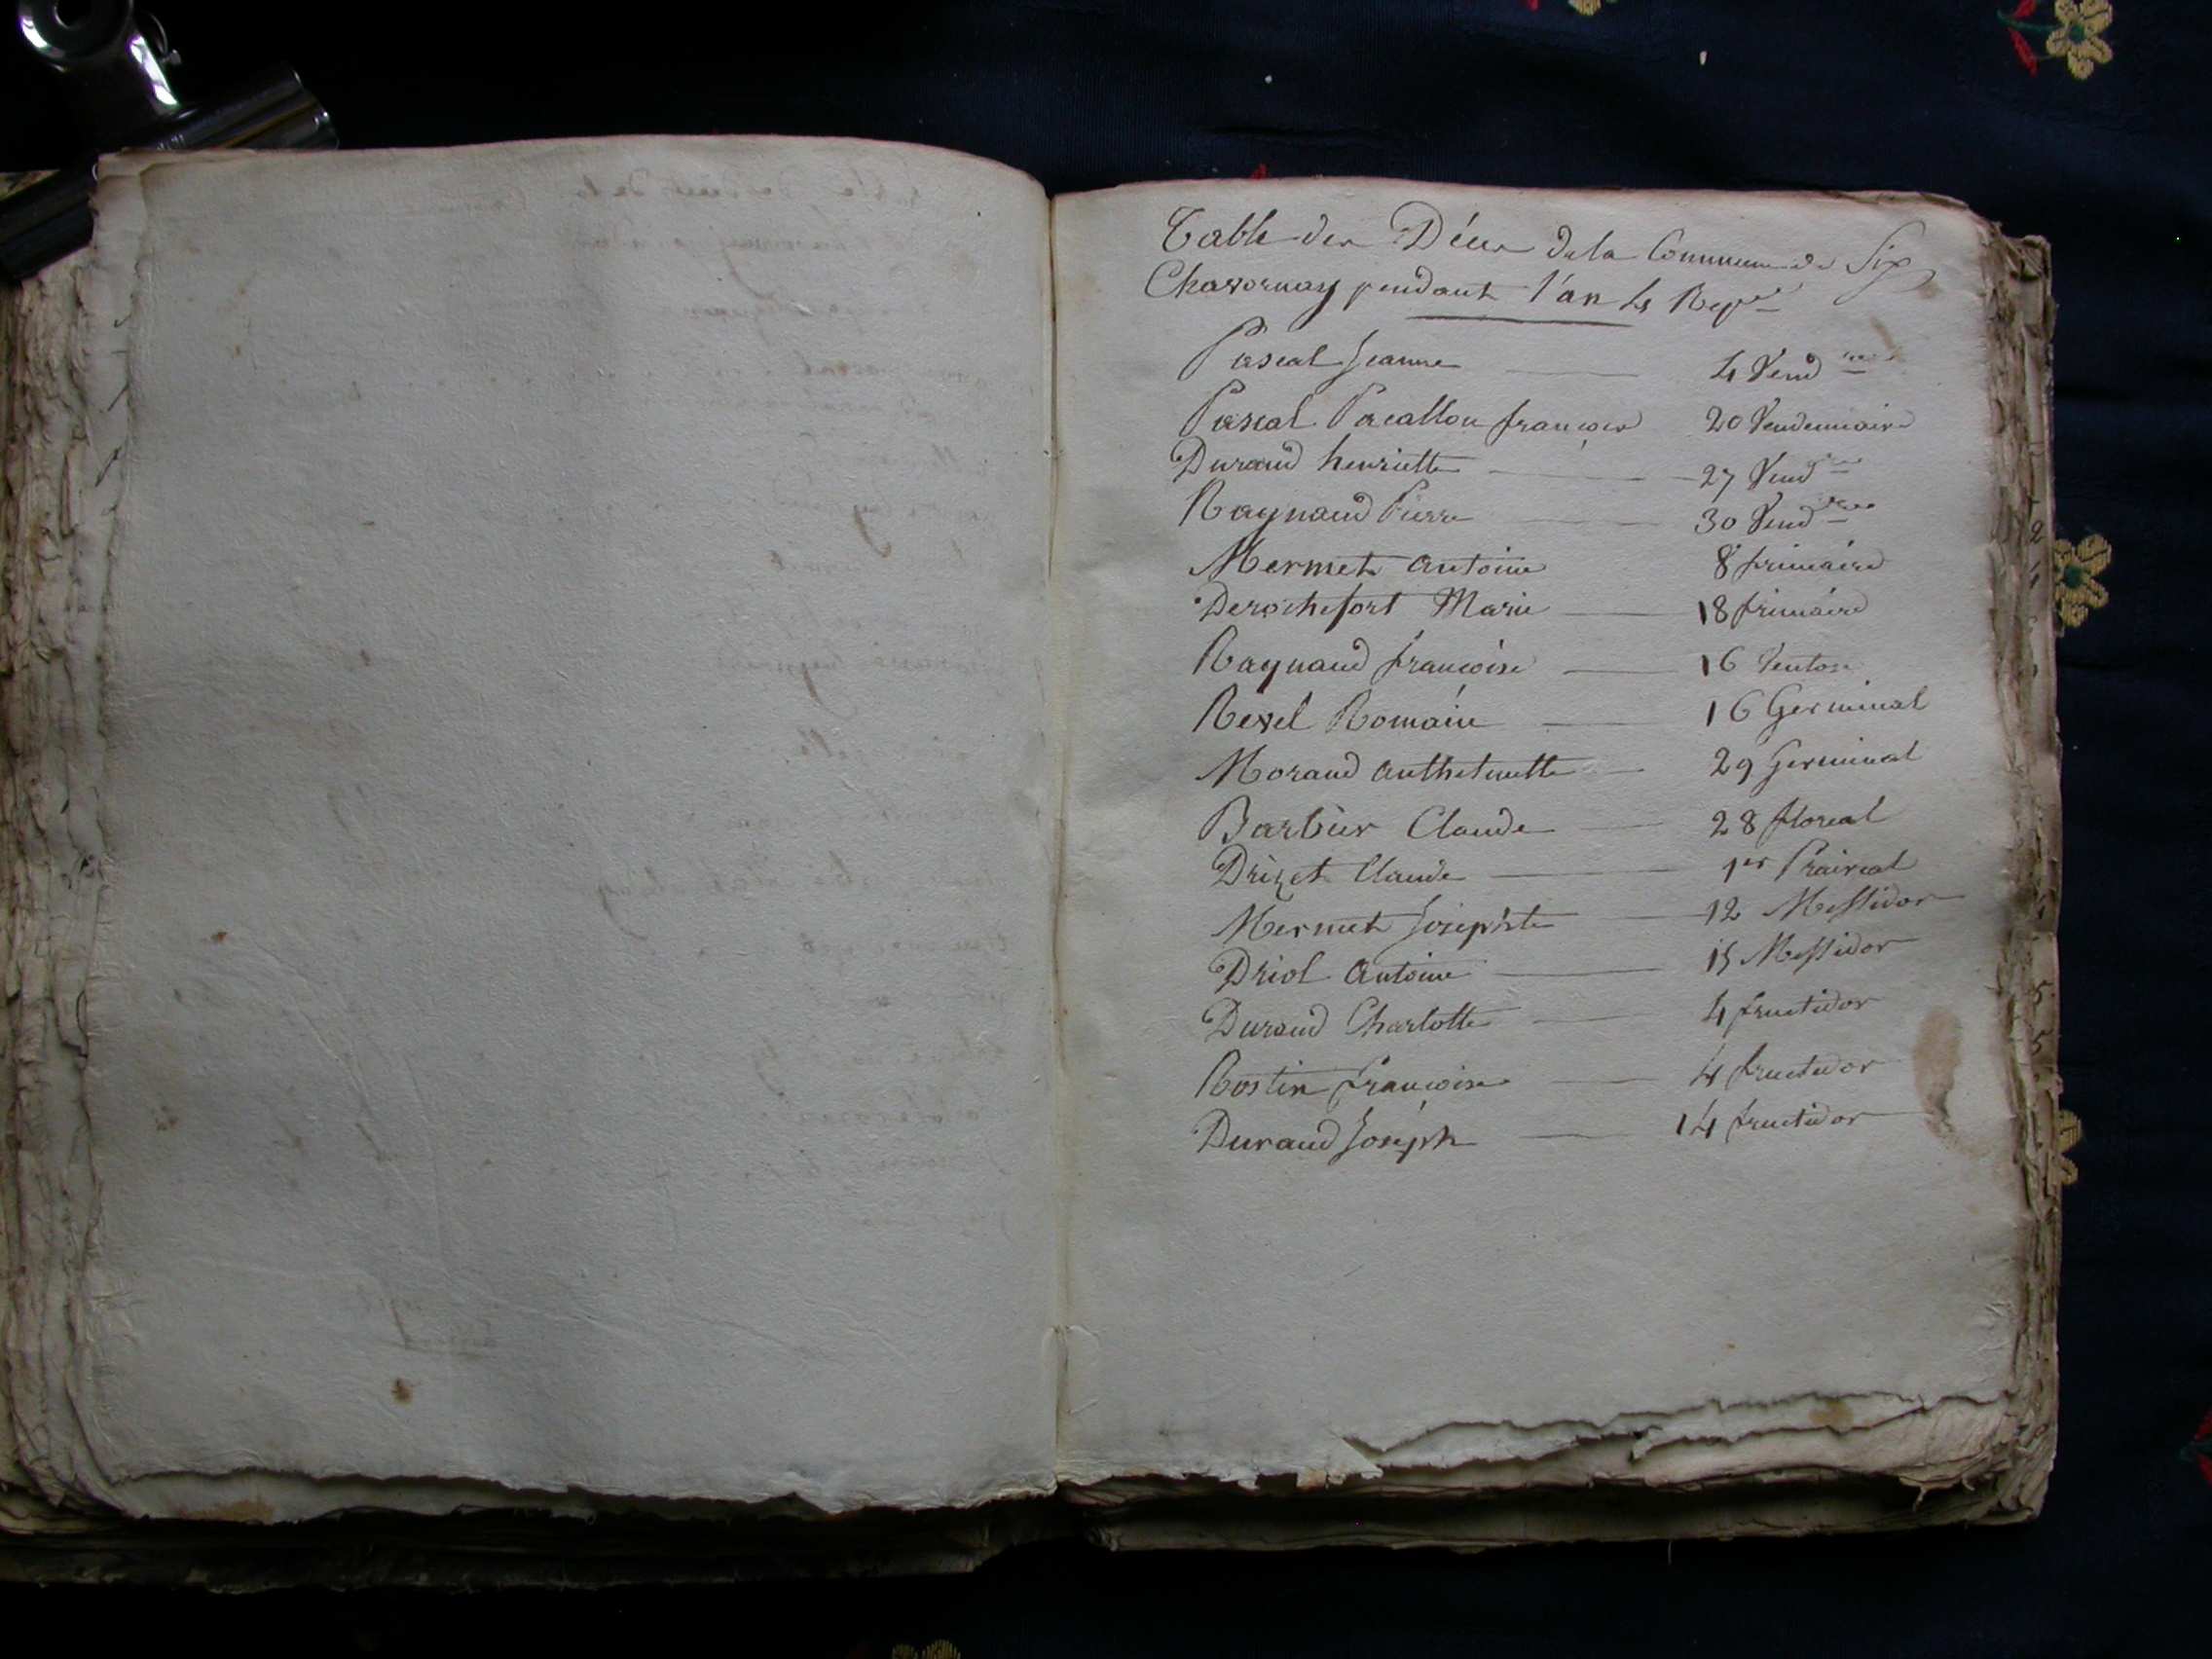 Table des Décès de la Commune de
Chavornay pendant l'an 4 Rep
Pascal Jeanne 4 Vend re
Pascal Pacallon françois 20 Vendemiaire
Durand henriette 27 Vend re
Raynaud Pierre 30 Vend re
Mermet antoine 8 frimaire
Derochefort Marie 18 frimaire
Raynaud françoise 16 Ventose
Revel Romain 16 Germinal
Morand anthelmette 29 Germinal
Barbier Claude 28 floreal
Drizet Claude 1er Praireal
Mermet Josephte 12 Messidor
Driol antoine 15 Messidor
Durand Charlotte 4 fructidor
Rostin françoise 4 fructidor
Durand Joseph 14 fructidor